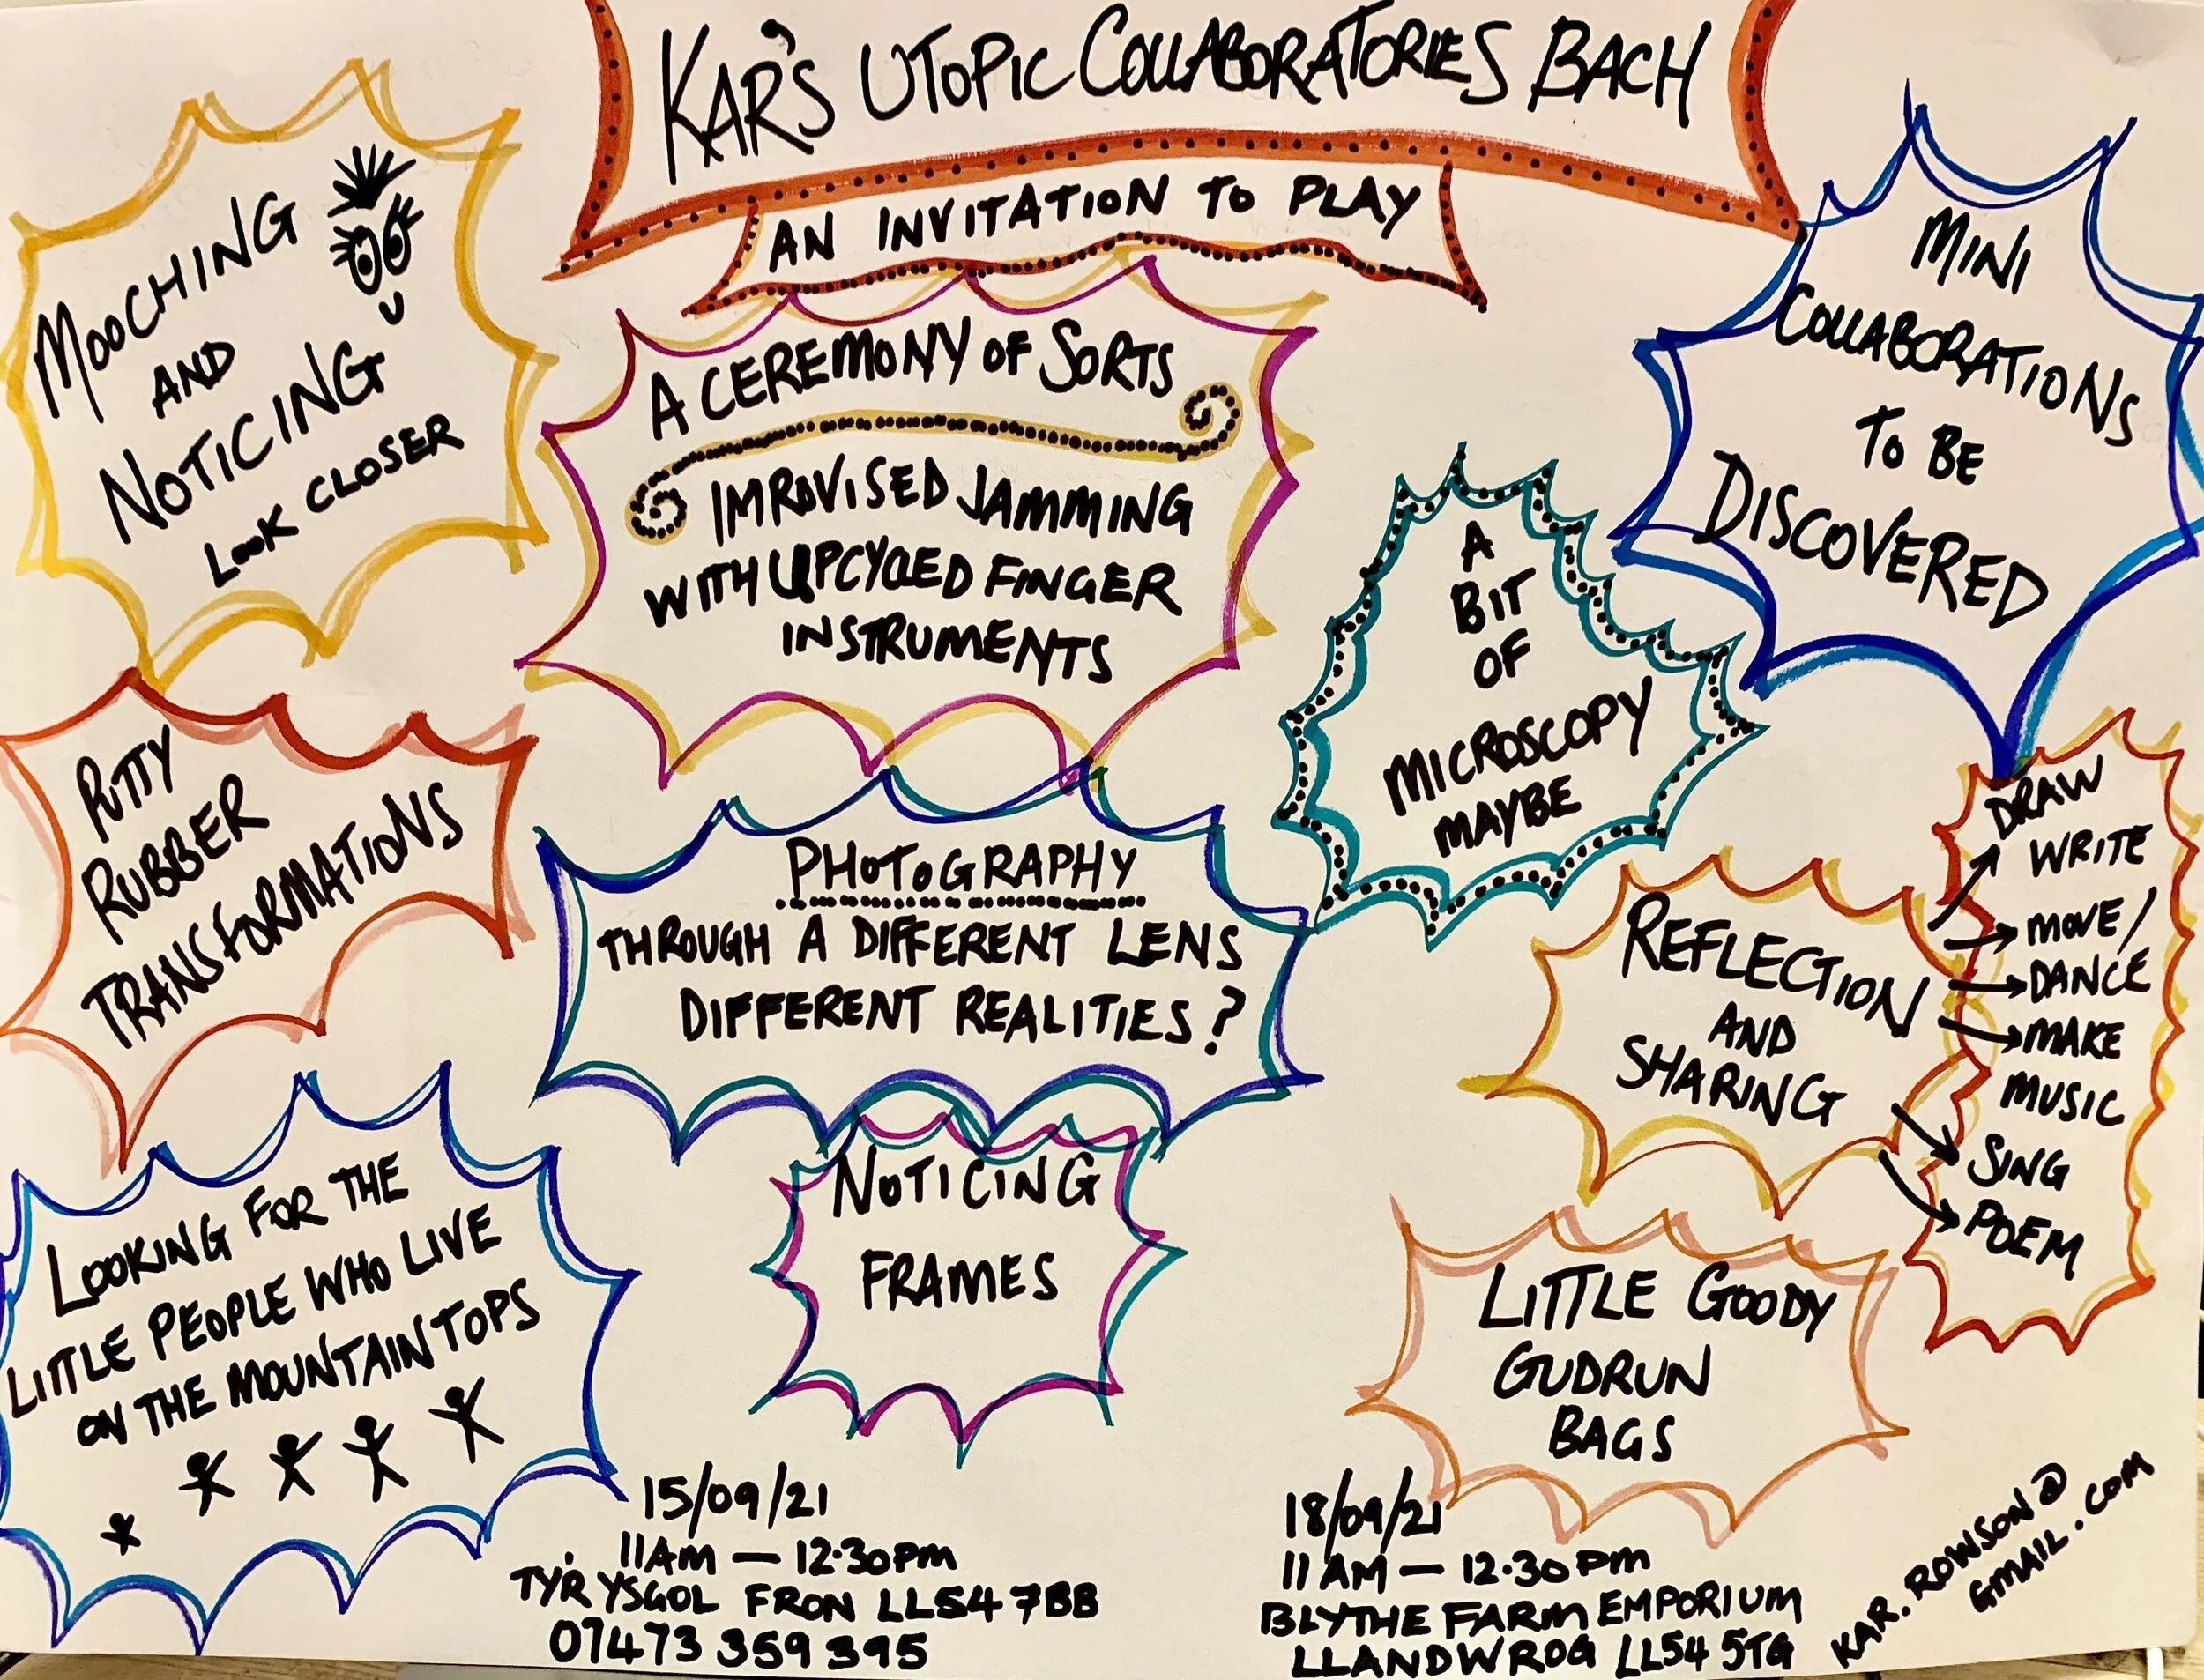 KAR'S UTOPIC COLLABORATORIES BACH
AN INVITATION TO PLAY
MOOCHING
AND
NOTICING
LOOK CLOSER
A CEREMONY OF SORTS
IMPROVISED JAMMING
WITH UPCYCLED FINGER
INSTRUMENTS
MINI
COLLABORATIONS
TO BE
DISCOVERED
A
BIT
OF
MICROSCOPY
MAYBE
PUTTY
RUBBER
TRANSFORMATIONS
PHOTOGRAPHY
THROUGH A DIFFERENT LENS
DIFFERENT REALITIES?
REFLECTION
AND
SHARING
DRAW
WRITE
MOVE/
DANCE
MAKE
MUSIC
SING
POEM
LOOKING FOR THE
LITTLE PEOPLE WHO LIVE
ON THE MOUNTAIN TOPS
NOTICING
FRAMES
LITTLE GOODY
GUDRUN
BAGS
15/09/21
11AM — 12.30PM
TY'R YSGOL FRON LL54 7BB
07473 359 395
18/09/21
11 AM — 12.30 PM
BLYTHE FARM EMPORIUM
LLANDWROG LL54 5TG
KAR.ROWSON@
GMAIL.COM